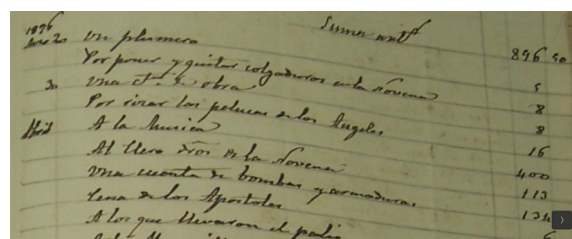 1896 Suma antr
Marzo 20 un plumero 896 50
Por poner y quitar colgaduras en la Novena 5
30 Una Cta de obra 8
Por rizar las pelucas de los Angeles 8
Abril A la Musica 16
Al Clero en la Novena 400
Una cuenta de bombas y armaduras 113
Cena de los Apostoles 134
A los que llevaron el palio 6